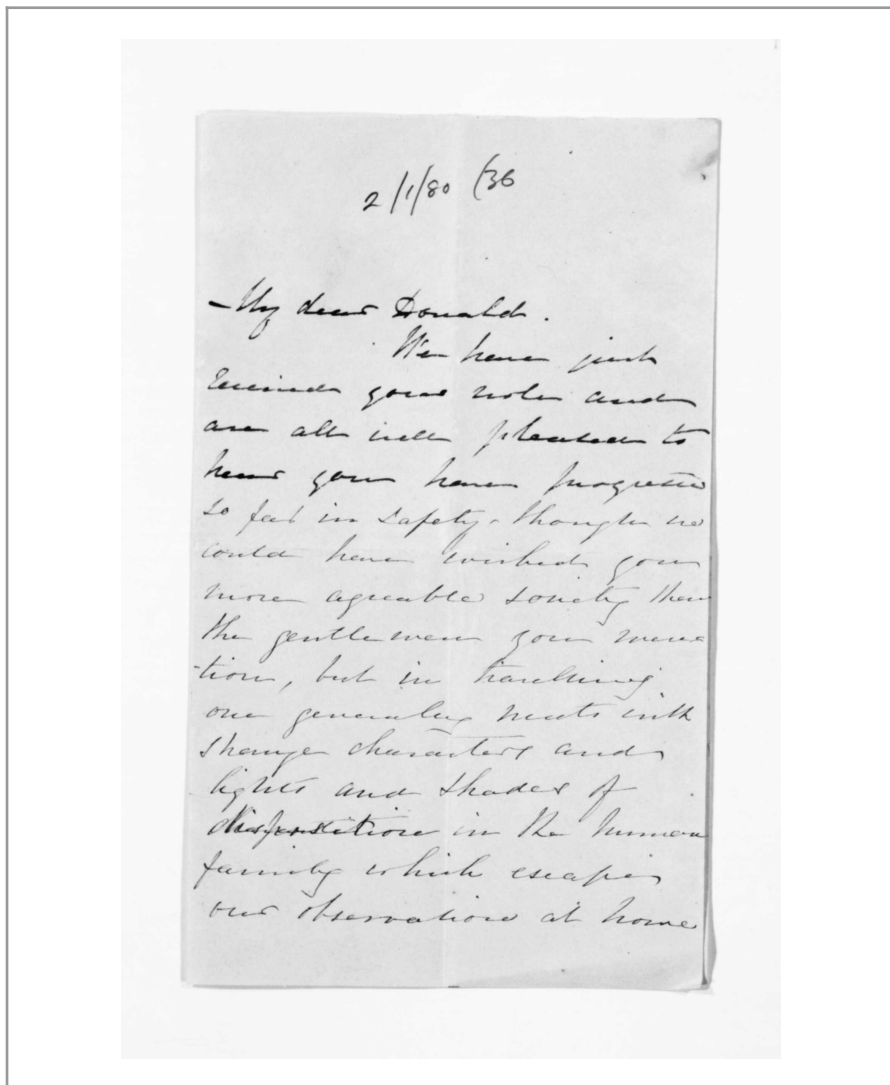 2/1/80 (36
My dear Donald.
We have just
received your note and
are all well pleased to
hear you have progressed
so far in safety - though we
could have wished you
more agreable society than
the gentlemen you men
tion, but in travelling
one generally meets with
strange characters and
lights and shades of
disposition in the human
family which escapes
our observation at home